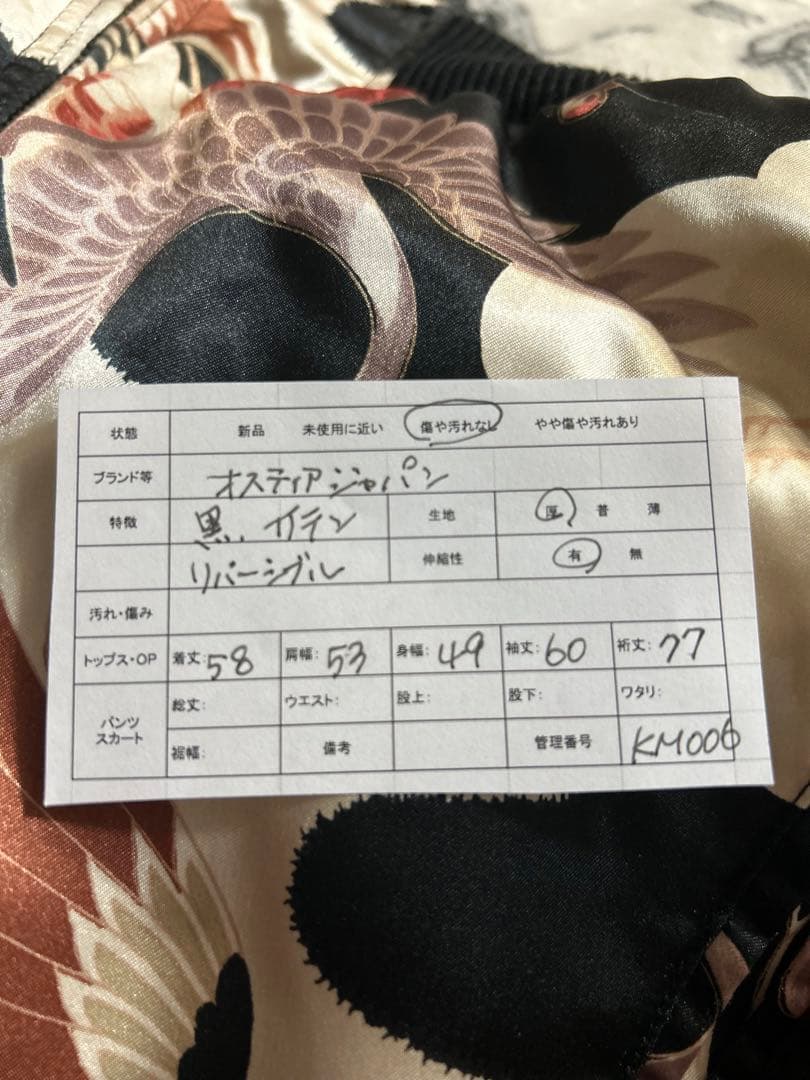 状態 新品 未使用に近い 傷や汚れなし やや傷や汚れあり
ブランド等 オスティアジャパン
特徴 黒、イテン 生地 厚 普 薄
リバーシブル 伸縮性 有 無
汚れ・傷み
トップス・OP 着丈:58 肩幅:53 身幅:49 袖丈:60 裄丈:77
パンツ スカート 総丈: ウエスト: 股上: 股下: ワタリ:
裾幅: 備考 管理番号 KM006